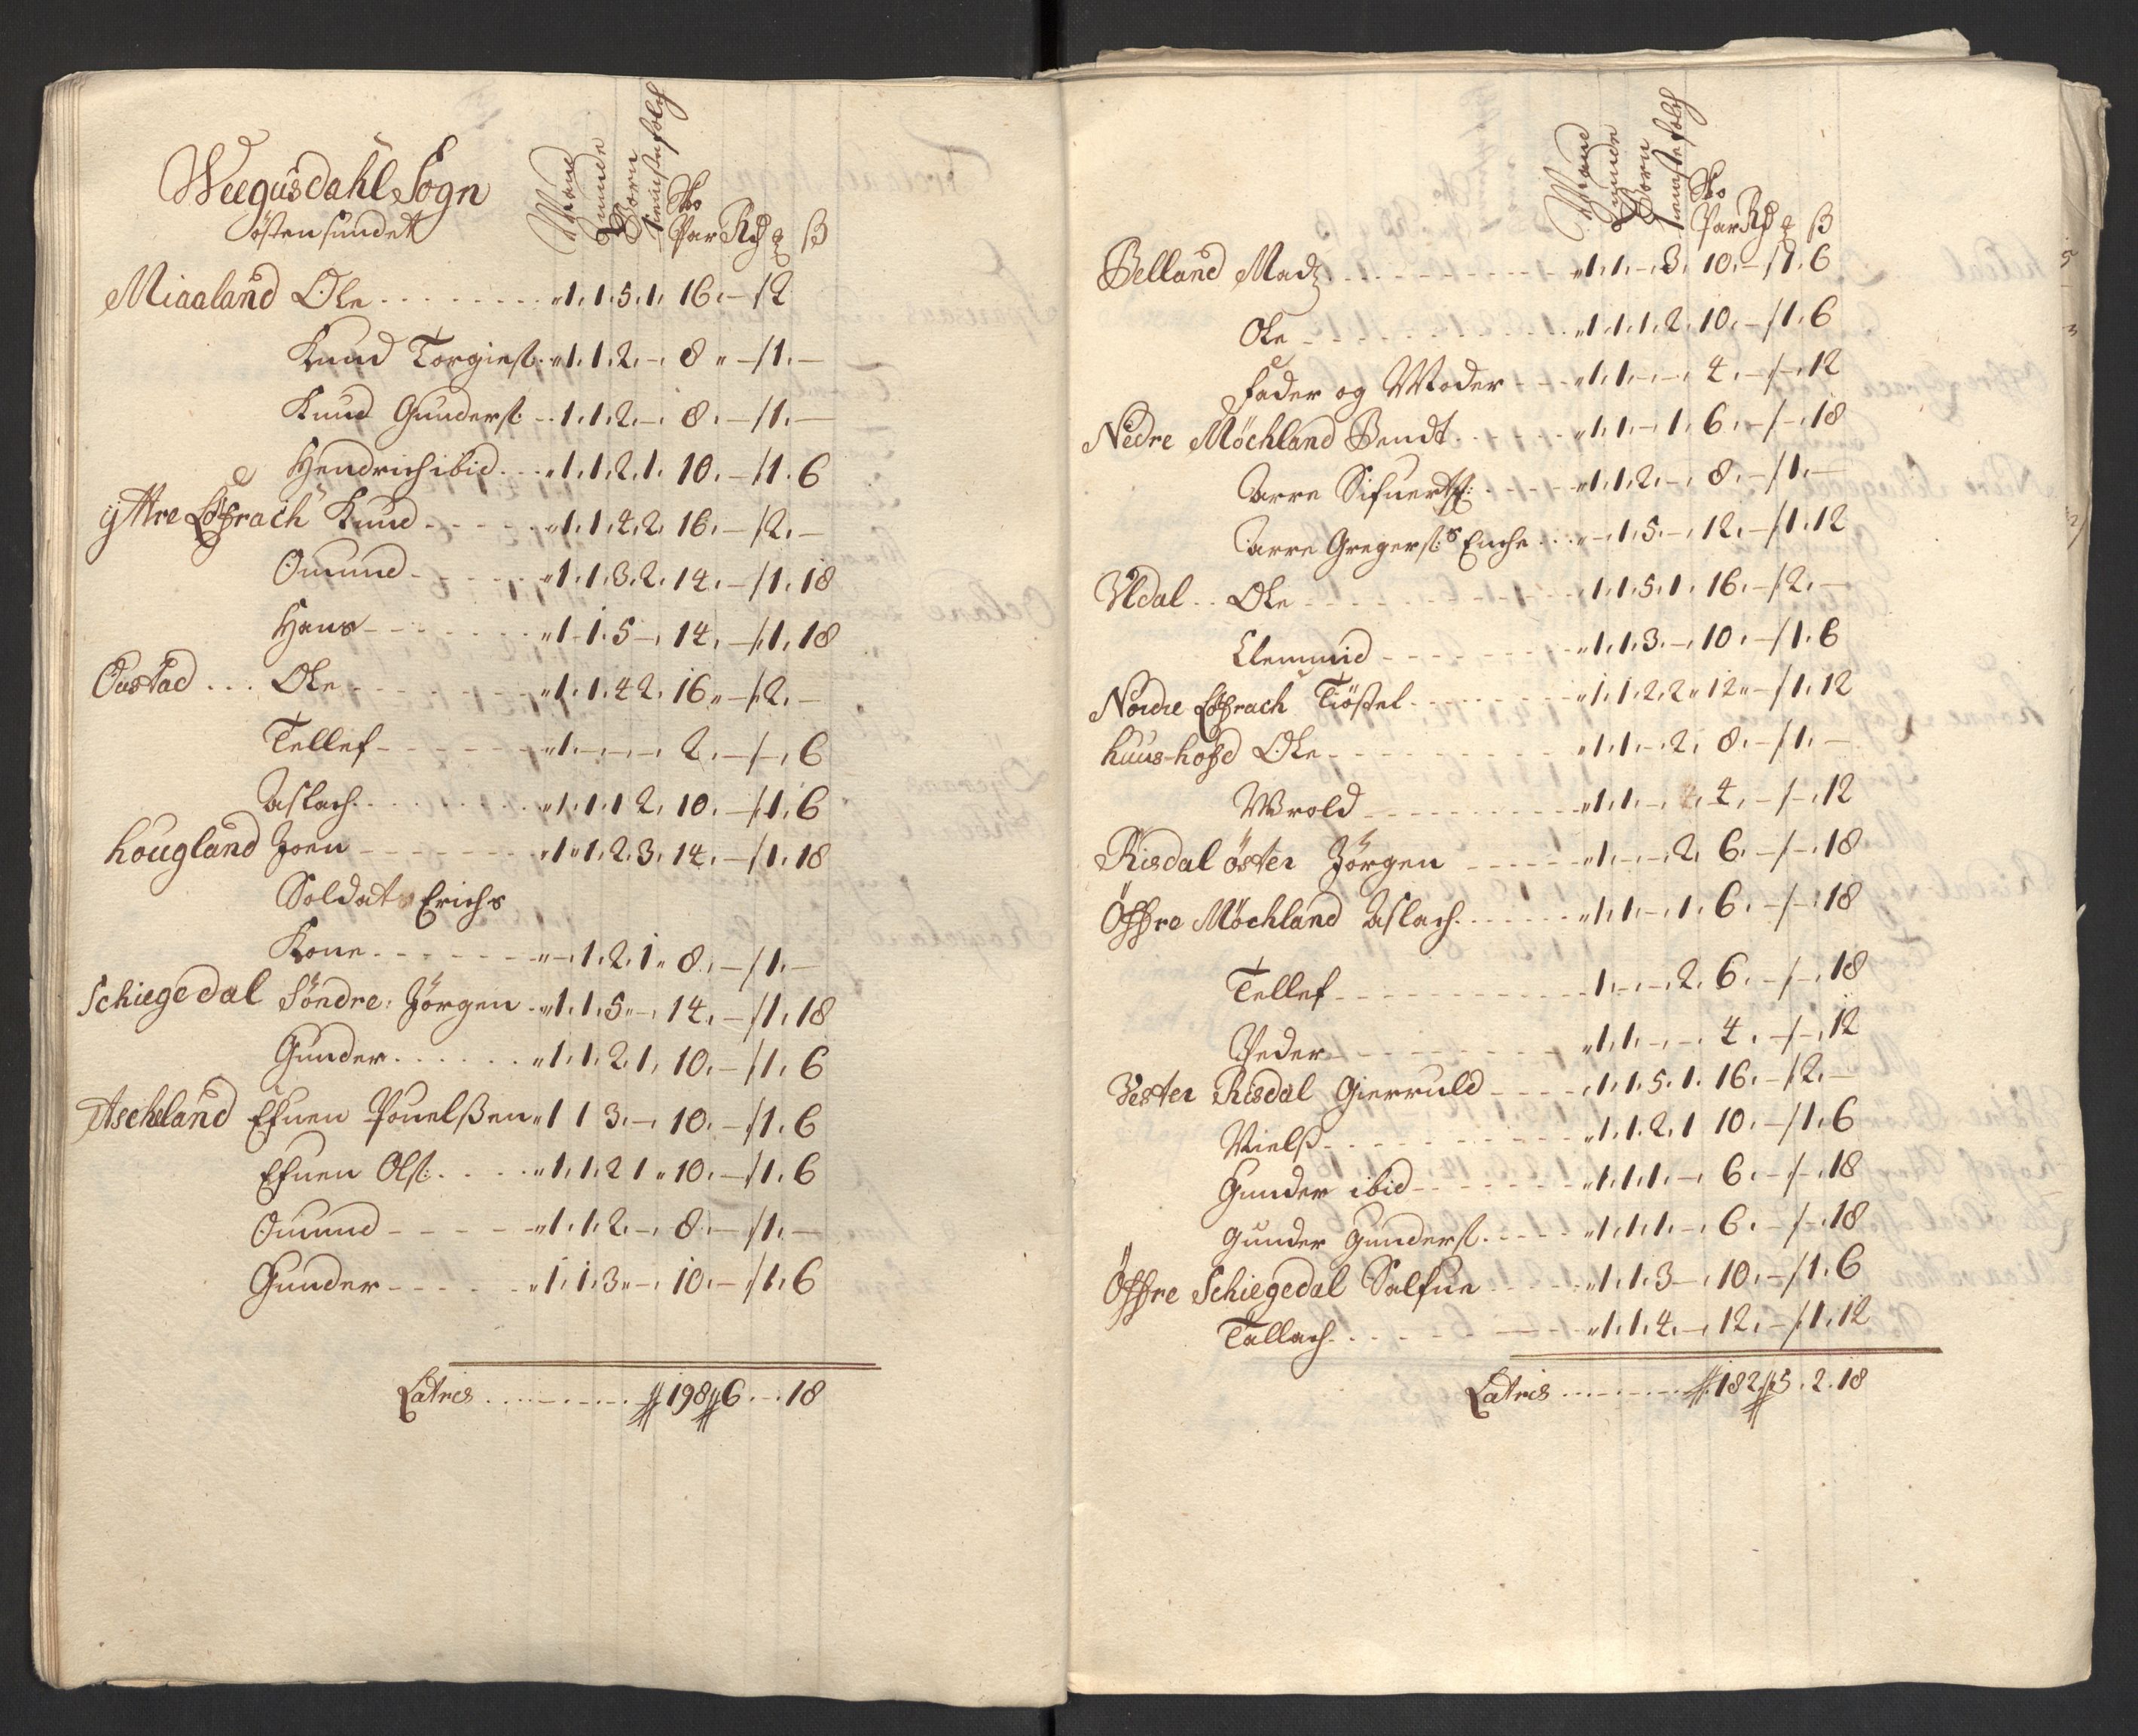 Weegusdahl Sogn
östen sundet
Mand
Quinde
Börn
tienstefolch
Sko
Par Rd ꝗ ß
Miaaland Ole . . . . . . . . 1. 1. 5. 1. 16. – /2
Knud Torgiels: 1. 1. 2. –. 8 „ – /1. –
Knud Gunders: . . 1. 1. 2. –. 8. – /1. –
Hendrich ibid . . . 1. 1. 2. 1. 10. – /1. 6
ÿttre Lofrach Knud - - - - - 1. 1. 4. 2. 16. – /2. –
Omund - - - - - 1. 1. 3. 2. 14. – /1. 18
Hans - - - - - - 1. 1. 5 –. 14. – /1. 18
Oustad . . . Ole - - - - - - - 1. 1. 4 2. 16 „ – /2. –
Tellef - - - - - - - 1. –. –. –. 2. – / –. 6
Aslach . . . . . . . . . 1. 1. 1 2. 10. – /1. 6
hougland Joen - - - - - - - 1 „ 1. 2. 3. 14. – /1. 18
Soldat Erichs
Kone - - - - - - - –. 1. 2. 1 „ 8. – /1. –
Schiegedal Söndre: Jörgen . 1. 1. 5 „ –. 14. – /1. 18
Gunder . . . . . . 1. 1. 2. 1. 10. – /1. 6
Ascheland Efuen Pouelßen 1 1 3. –. 10. – /1. 6
Efuen Ols: . . . . 1. 1. 2 1 „ 10. – /1. 6
Omund - - - - - 1. 1. 2. –. 8. – /1. –
Gunder - - - - - 1. 1. 3 „ –. 10. – /1. 6
Latris . . . . . . . . . 198 6. –. 18
Mand
Quinde
Börn
tienstefolch
Sko
Par Rd ꝗ ß
Belland Madz . . . . . . . . . . 1. 1. –. 3. 10. – /1. 6
Ole - - - - - - - - - - 1. 1. 1. 2. 10. – /1. 6
Fader og Moder - - - 1. 1. –. –. 4. – / –. 12
Nedre Möchland Bendt . . . . . . 1. 1. –. 1. 6. – / –. 18
Aarre Sifuerts: . . . . 1. 1. 2. –. 8. – /1. –
Aarre Gregers:s Enche . . . –. 1. 5. –. 12. – /1. 12
Uldal . . Ole - - - - - - - - - - 1. 1. 5. 1. 16. – /2. –
Clemmid - - - - - - - - 1. 1. 3. –. 10. – /1. 6
Nordre Lofrach Tiöstel . . . . . . . . 1. 1. 2. 2 „ 12 „ – /1. 12
huus-hofd Ole - - - - - - - - - 1. 1. –. 2. 8. – /1. –
Wrold - - - - - - - - - - 1. 1. –. 4. – / –. 12
Risdal öster Jörgen - - - - - 1. –. –. 2. 6. – / –. 18
Öffre Möchland Aslach . . . . . . 1. 1. –. 1. 6. – / –. 18
Tellef - - - - - - - - - - - 1. –. –. 2. 6. – / –. 18
Peder - - - - - - - - - - 1. 1. –. –. 4. – / –. 12
Vester Risdal Gierruld - - - - 1. 1. 5. 1. 16. – /2. –
Nielß - - - - - - - - - - 1. 1. 2. 1 10. – /1. 6
Gunder ibid - - - - - - - 1. 1. 1. –. 6. – / –. 18
Gunder Gunders: . . . . 1. 1. 1. –. 6. – / –. 18
Öffre Schiegedal Salfue . . . . . 1. 1. 3 –. 10. – /1. 6
Tallach . . . . - - - - - - 1. 1. 4. –. 12. – /1. 12
Latris . . . . . . . . . 182 5. 2. 18